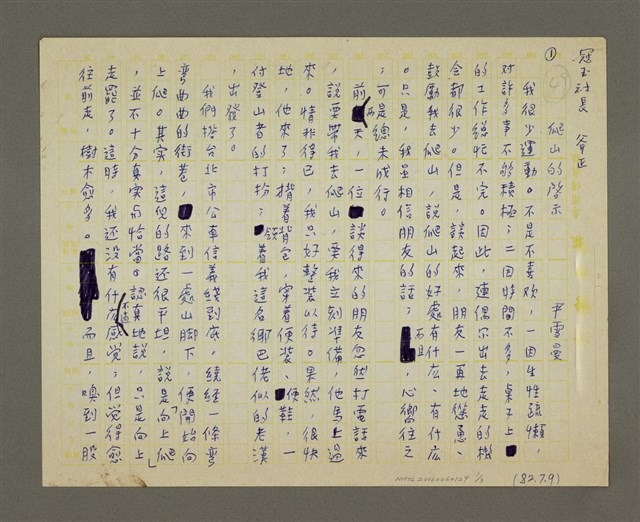 冠玉社長 斧正
①
爬山的啓示　尹雪曼
我很少運動。不是不喜歡，一因生性疏懶，
對許多事不夠積極；二因時間不多，桌子上
的工作總忙不完。因此，連偶尔出去走走的機
会都很少。但是，談起來，朋友一再地慫恿、
鼓勵我去爬山，說爬山的好處有什広、有什広
。只是，我虽相信朋友的話；而且，心嚮往之
；可是總未成行。
前兩天，一位談得來的朋友忽然打電話來
，說要帶我去爬山，要我立刻準備，他馬上過
來。情非得已，我只好整装以待。果然，很快
地，他來了；揹着背包，穿着便装、便鞋，一
付登山者的打扮；領着我這名鄉巴佬似的老漢
，出發了。
我們搭台北市公車信義綫到底，繞經一條彎
彎曲曲的街巷，來到一處山脚下，便開始向
上爬。其实，這兒的路还很平坦，説是「向上爬」
，並不十分真実而恰當。認真地說，只是向上
走罷了。這時，我还没有什広感覚；不過，但覚得愈
往前走，樹木愈多。而且，嗅到一股
(82.7.9)